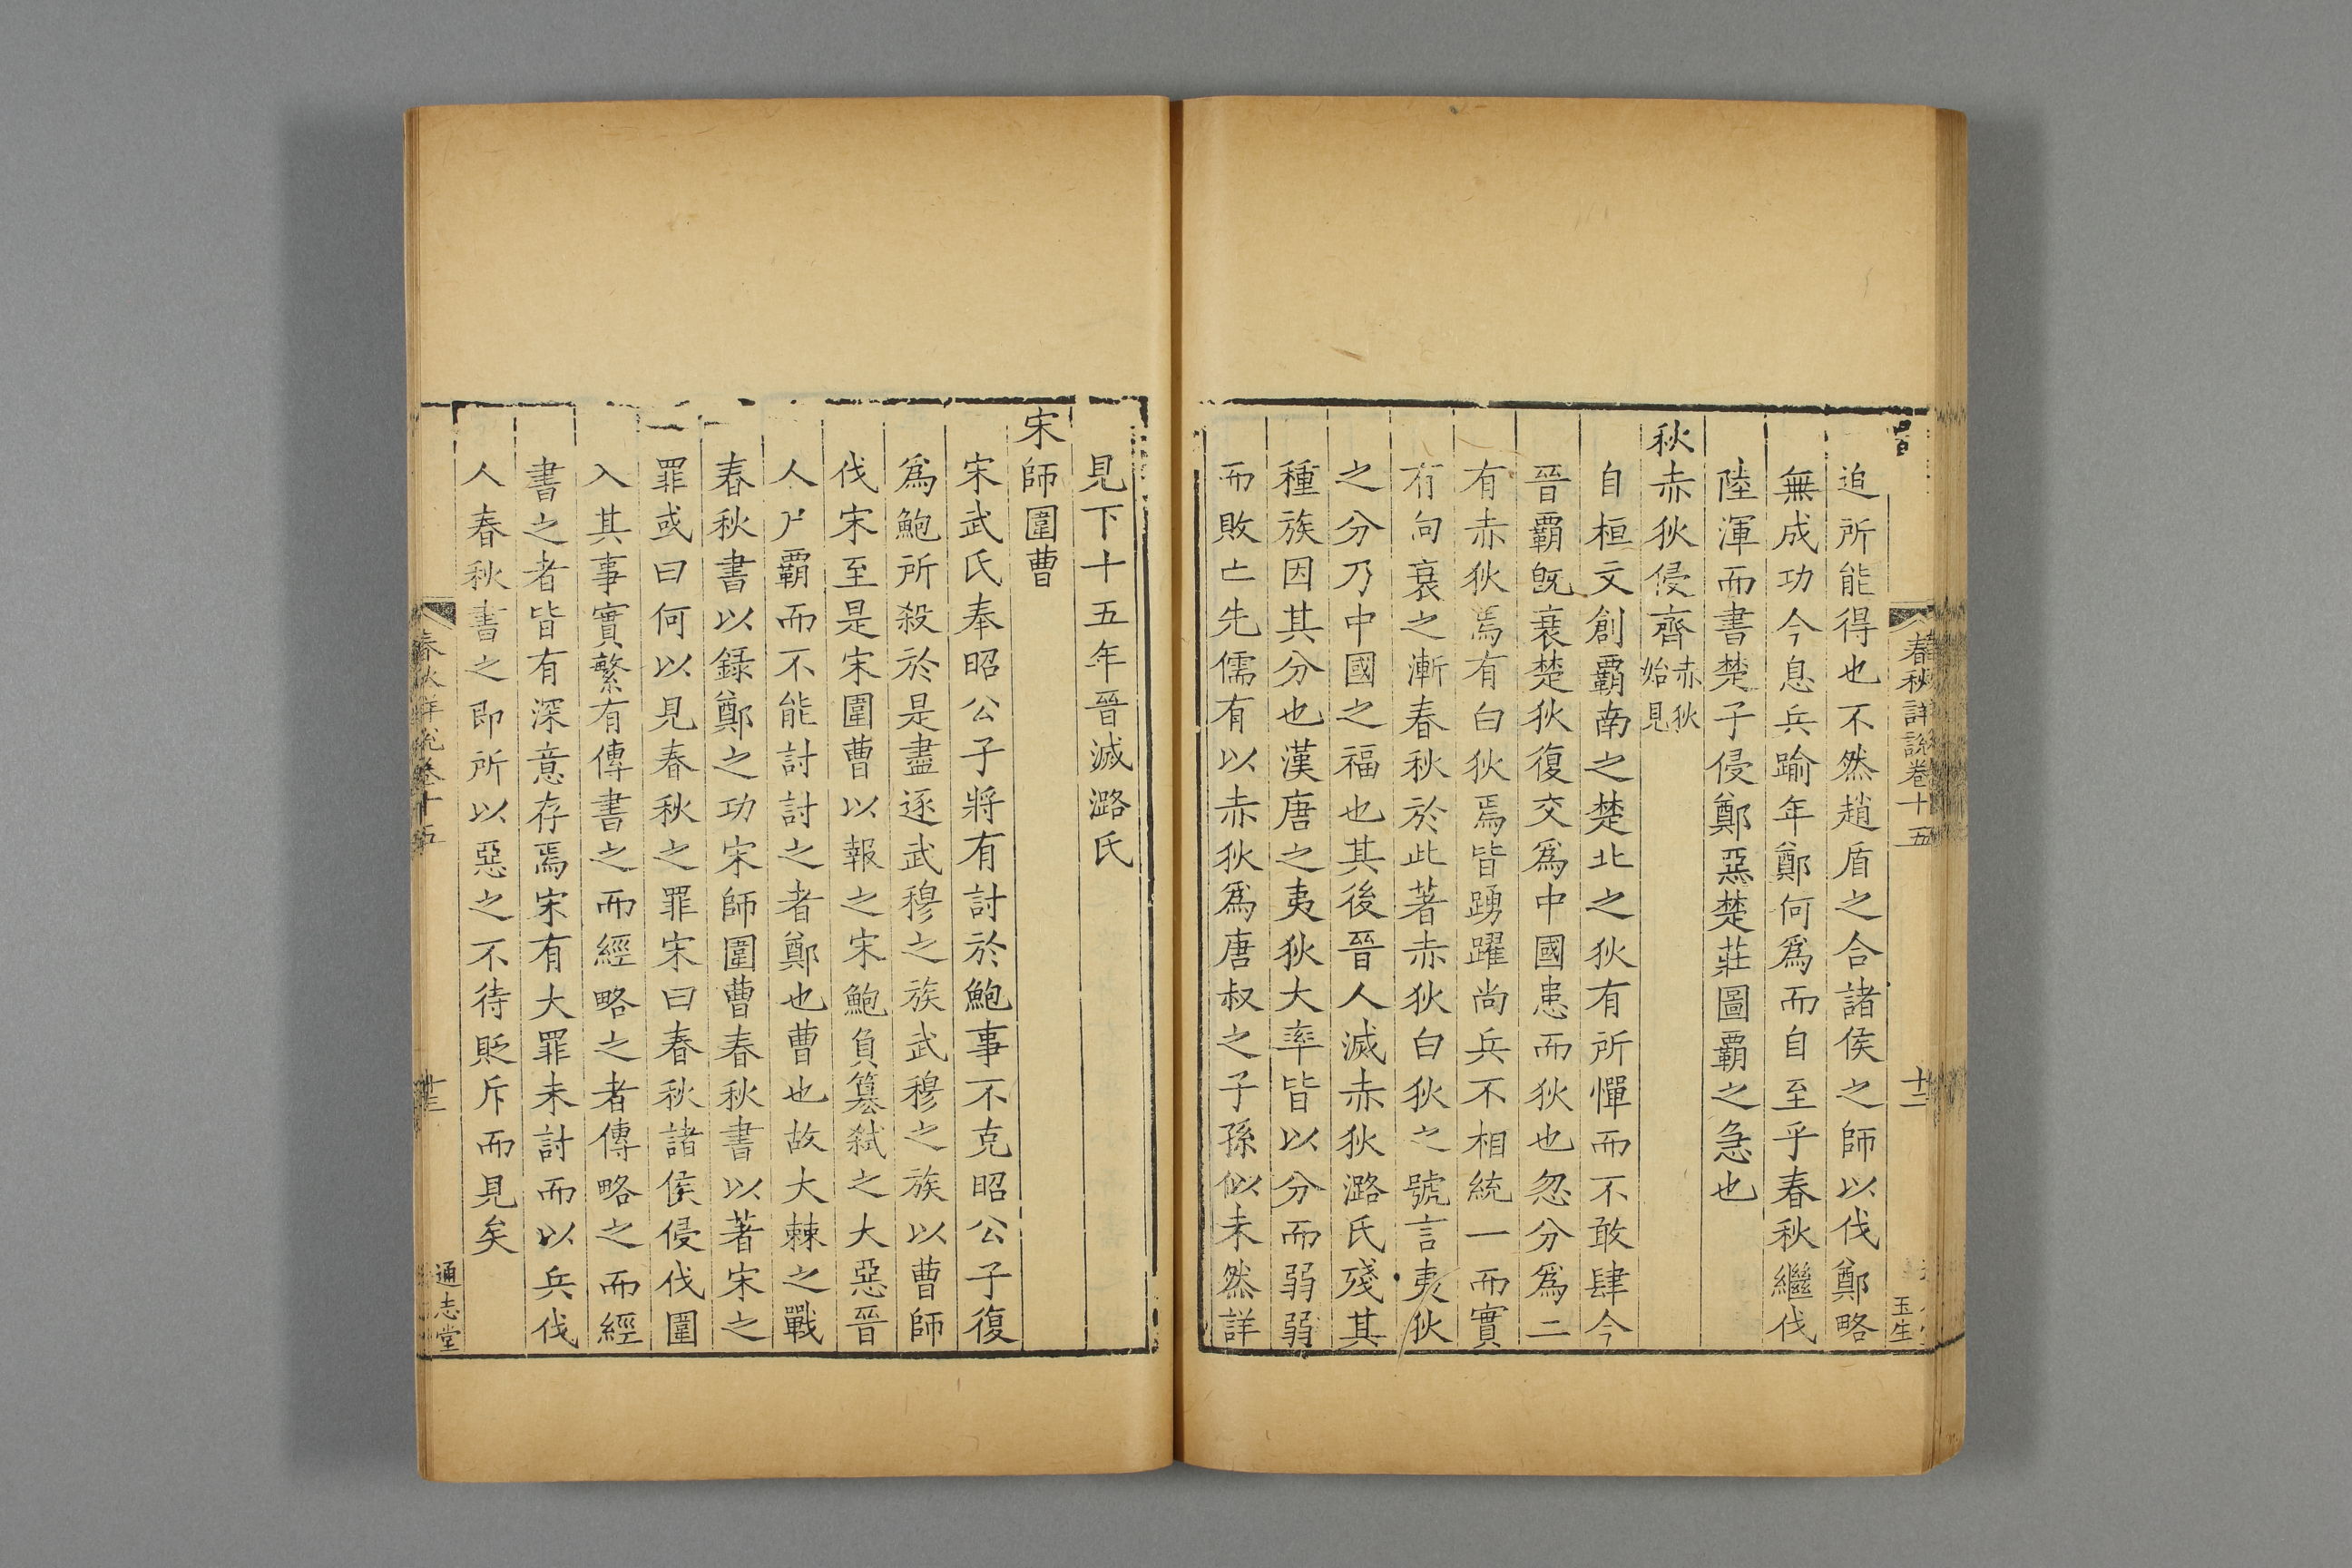 春秋詳說卷十五
十二
玉生
迫所能得也不然趙盾之合諸侯之師以伐鄭略
無成功今息兵踰年鄭何爲而自至乎春秋繼伐
陸渾而書楚子侵鄭惡楚莊圖覇之急也
秋赤狄侵齊赤狄始見
自桓文創覇南之楚北之狄有所憚而不敢肆今
晉覇旣衰楚狄復交爲中國患而狄也忽分爲二
有赤狄焉有白狄焉皆踴躍尚兵不相統一而實
有向衰之漸春秋於此著赤狄白狄之號言夷狄
之分乃中國之福也其後晉人滅赤狄潞氏殘其
種族因其分也漢唐之夷狄大率皆以分而弱弱
而敗亡先儒有以赤狄爲唐叔之子孫似未然詳
見下十五年晉滅潞氏
宋師圍曹
宋武氏奉昭公子將有討於鮑事不克昭公子復
爲鮑所殺於是盡逐武穆之族武穆之族以曹師
伐宋至是宋圍曹以報之宋鮑負簒弑之大惡晉
人尸覇而不能討討之者鄭也曹也故大棘之戰
春秋書以録鄭之功宋師圍曹春秋書以著宋之
罪或曰何以見春秋之罪宋曰春秋諸侯侵伐圍
入其事實繁有傳書之而經略之者傳略之而經
書之者皆有深意存焉宋有大罪未討而以兵伐
人春秋書之即所以惡之不待貶斥而見矣
春秋詳說卷十五
十三
通志堂